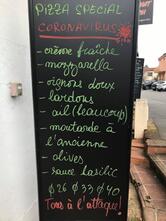 PIZZA SPECIAL
CORONAVIRUS
- crème fraîche
- mozzarella
- oignons doux
- lardons
- ail (beaucoup)
- moutarde à
l'ancienne
- olives
- sauce basilic
Ø26 Ø33 Ø40
Tous à l'attaque!